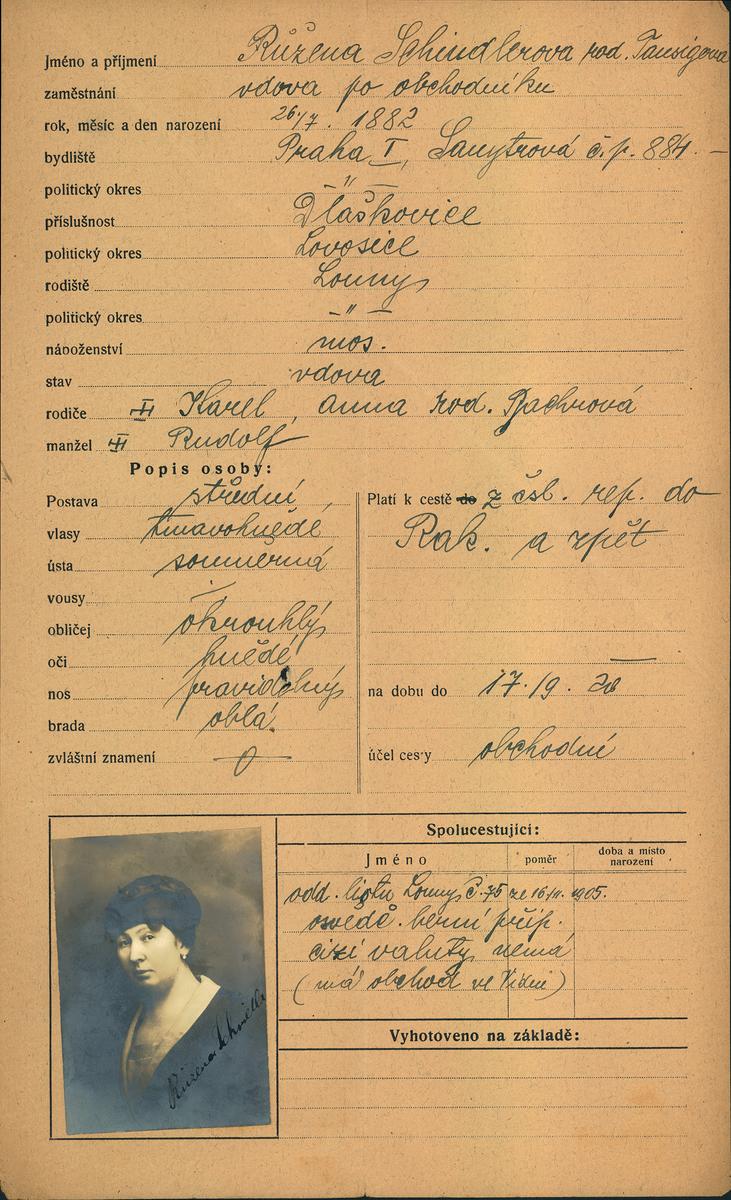 Jméno a příjmení Růžena Schindlerova rod. Tausigova
zaměstnání vdova po obchodníku
rok, měsíc a den narození 26/7. 1882
bydliště Praha I, Sanytrová č.p. 884. —
politický okres — " —
příslušnost Dlaškovice
politický okres Lovosice
rodiště Louny
politický okres — " —
náboženství mos.
stav vdova
rodiče Karel, Anna rod.
manžel Rudolf
Popis osoby:
Postava střední
vlasy tmavohnědé
ústa souměrná
vousy
obličej okrouhlý
oči hnědé
nos pravidelný
brada oblá
zvláštní znamení 0
Platí k cestě do z čsl. rep. do
Rak. a zpět
na dobu do 17./9. 20
účel cesty obchodní
Spolucestující:
Jméno poměr doba a místo narození
odd. listu Louny č. 75 ze 16/11. 1905.
osvědč. berní příp.
cizí valuty nemá
(má obchod ve Vídni)
Vyhotoveno na základě:
Růžena Schindler